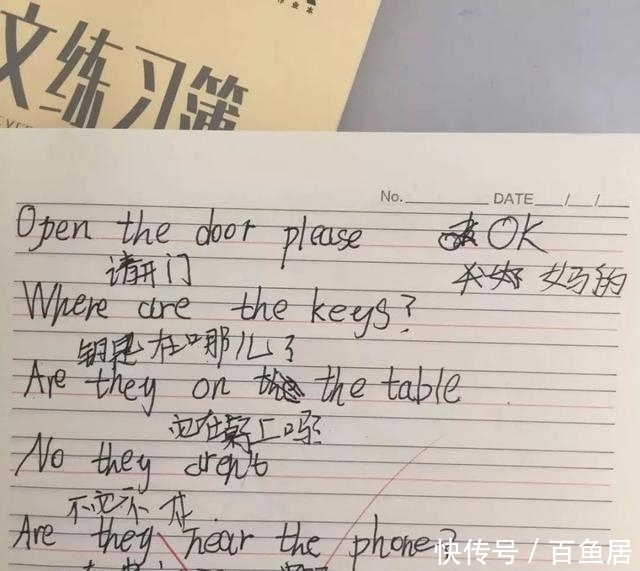 作业本
文练习簿
No. DATE / /
Open the door please OK
请开门 妈的
Where are the keys?
钥匙在哪儿了
Are they on the the table
它在桌上吗
No they aren't
不它不在
Are they near the phone?
快传号 / 百鱼居